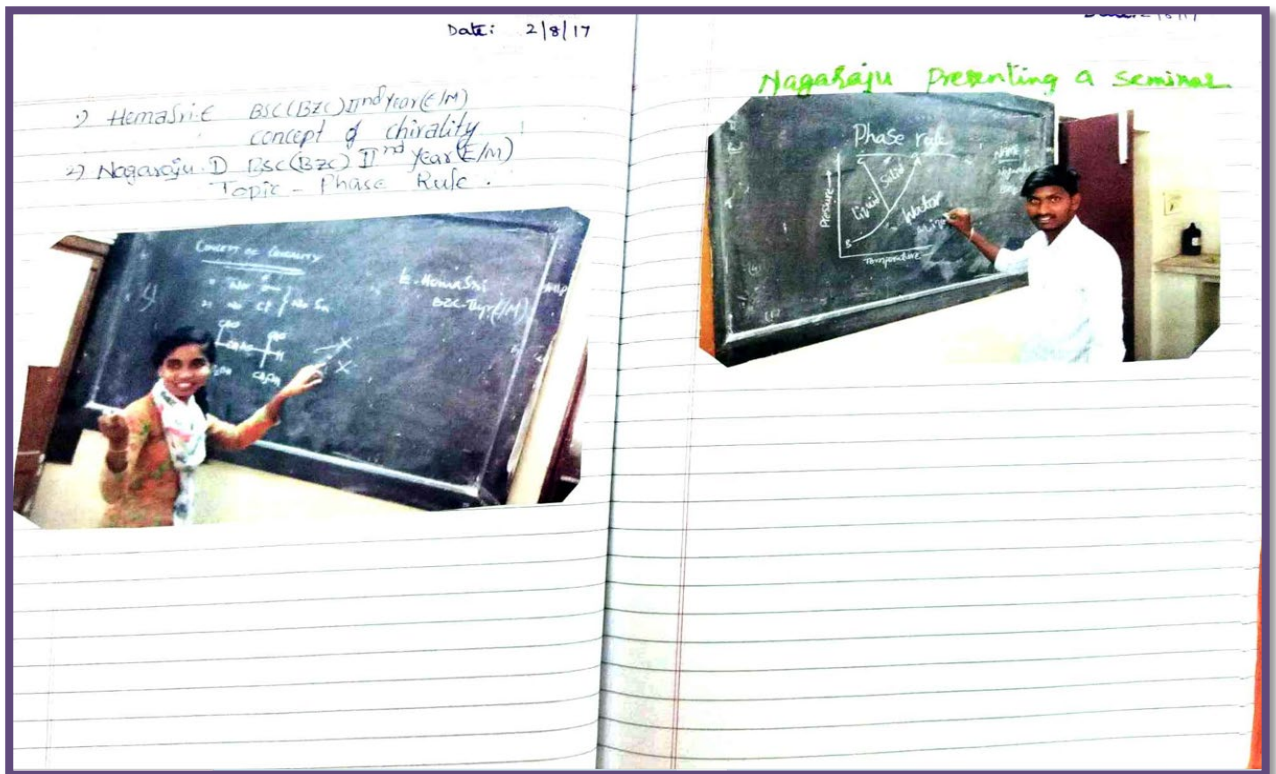 Date: 2/8/17
1) HemaSri.E BSC(BZC) IInd Year(E/M)
concept of chirality
2) Nagaraju.D BSC(BZC) IInd Year(E/M)
Topic - Phase Rule.
CONCEPT OF CHIRALITY
E. HemaSri
Nagaraju Presenting a seminar
Phase rule
Pressure →
Solid
Water
Temperature